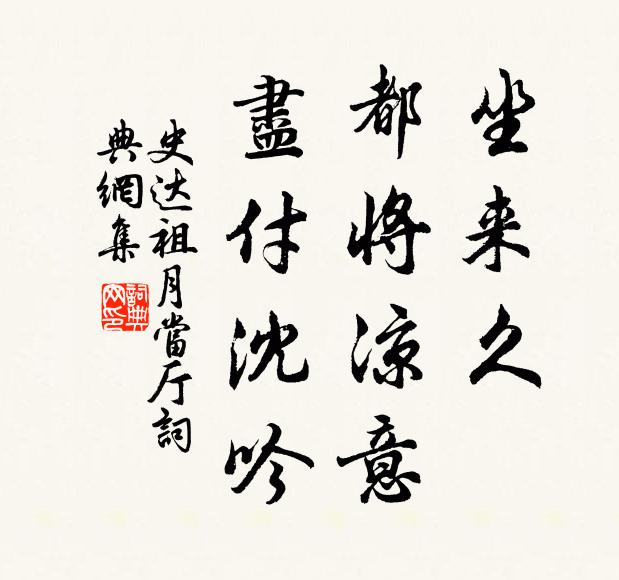 坐来久
都将凉意
盡付沈吟
史达祖月當厅詞
典網集
詞典
网印